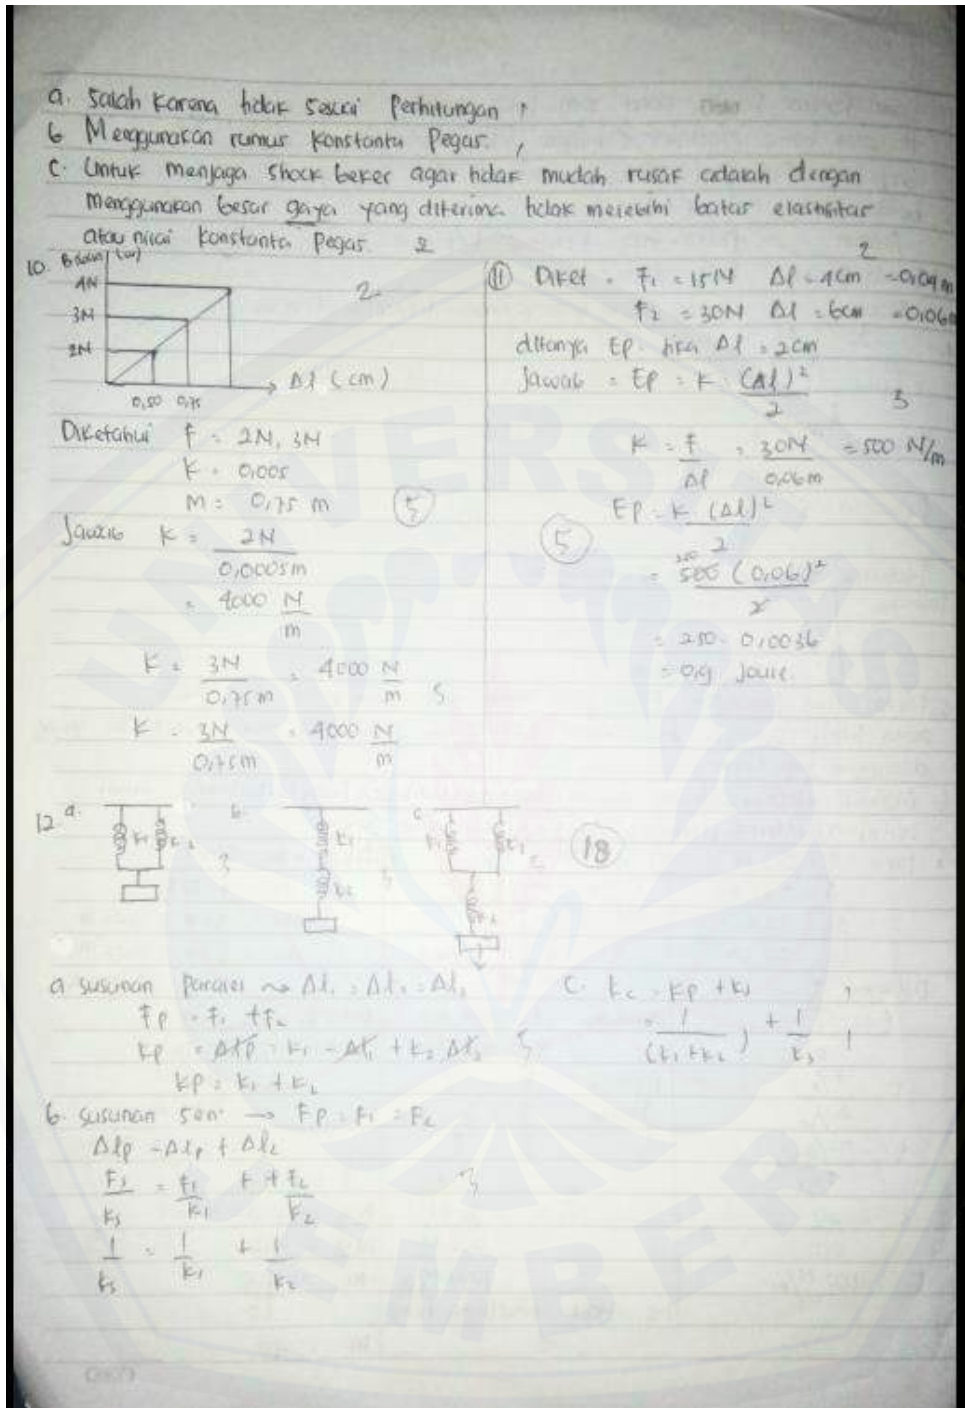 a. Salah karena tidak sesuai Perhitungan 1
b Menggunakan rumus konstanta Pegas. 1
c. Untuk menjaga shock beker agar tidak mudah rusak adalah dengan
menggunakan besar gaya yang diterima tidak melebihi batas elastisitas
atau nilai konstanta Pegas. 2
10. Beban (w)
4N
3N
2N
0,50 0,75
Δl (cm)
2
Diketahui F = 2N, 3N
K = 0,005
M = 0,75 m
5
Jawab K = 2N
0,0005m
= 4000 N
m
K = 3N = 4000 N
0,75m m 5
K = 3N = 4000 N
0,75m m
2
11 Diket = F1 = 15N Δl = 4cm = 0,04m
F2 = 30N Δl = 6cm = 0,06m
ditanya Ep jika Δl = 2cm
Jawab = Ep = K (Δl)²
2
3
K = F = 30N = 500 N/m
Δl 0,06m
Ep = K (Δl)²
2
5
250
= 500 (0,06)²
2
= 250 . 0,0036
= 0,9 Joule.
12 a.
K1 K2
3
b.
K1
K2
3
c
K1 K2
18
a susunan Paralel ~> Δl1 = Δl2 = Δl3
Fp = F1 + F2
Kp = Δlp = K1 - Δl1 + K2 Δl2 5
Kp = K1 + K2
b. susunan seri → Fp = F1 = F2
Δlp = Δlp + Δl2
Fs = F1 + + F2
Ks K1 K2
3
1 = 1 + 1
Ks K1 K2
C. Kc = Kp + Ks 1
= 1 ) + 1 1
(K1 + K2 K3
UNIVERSITAS JEMBER